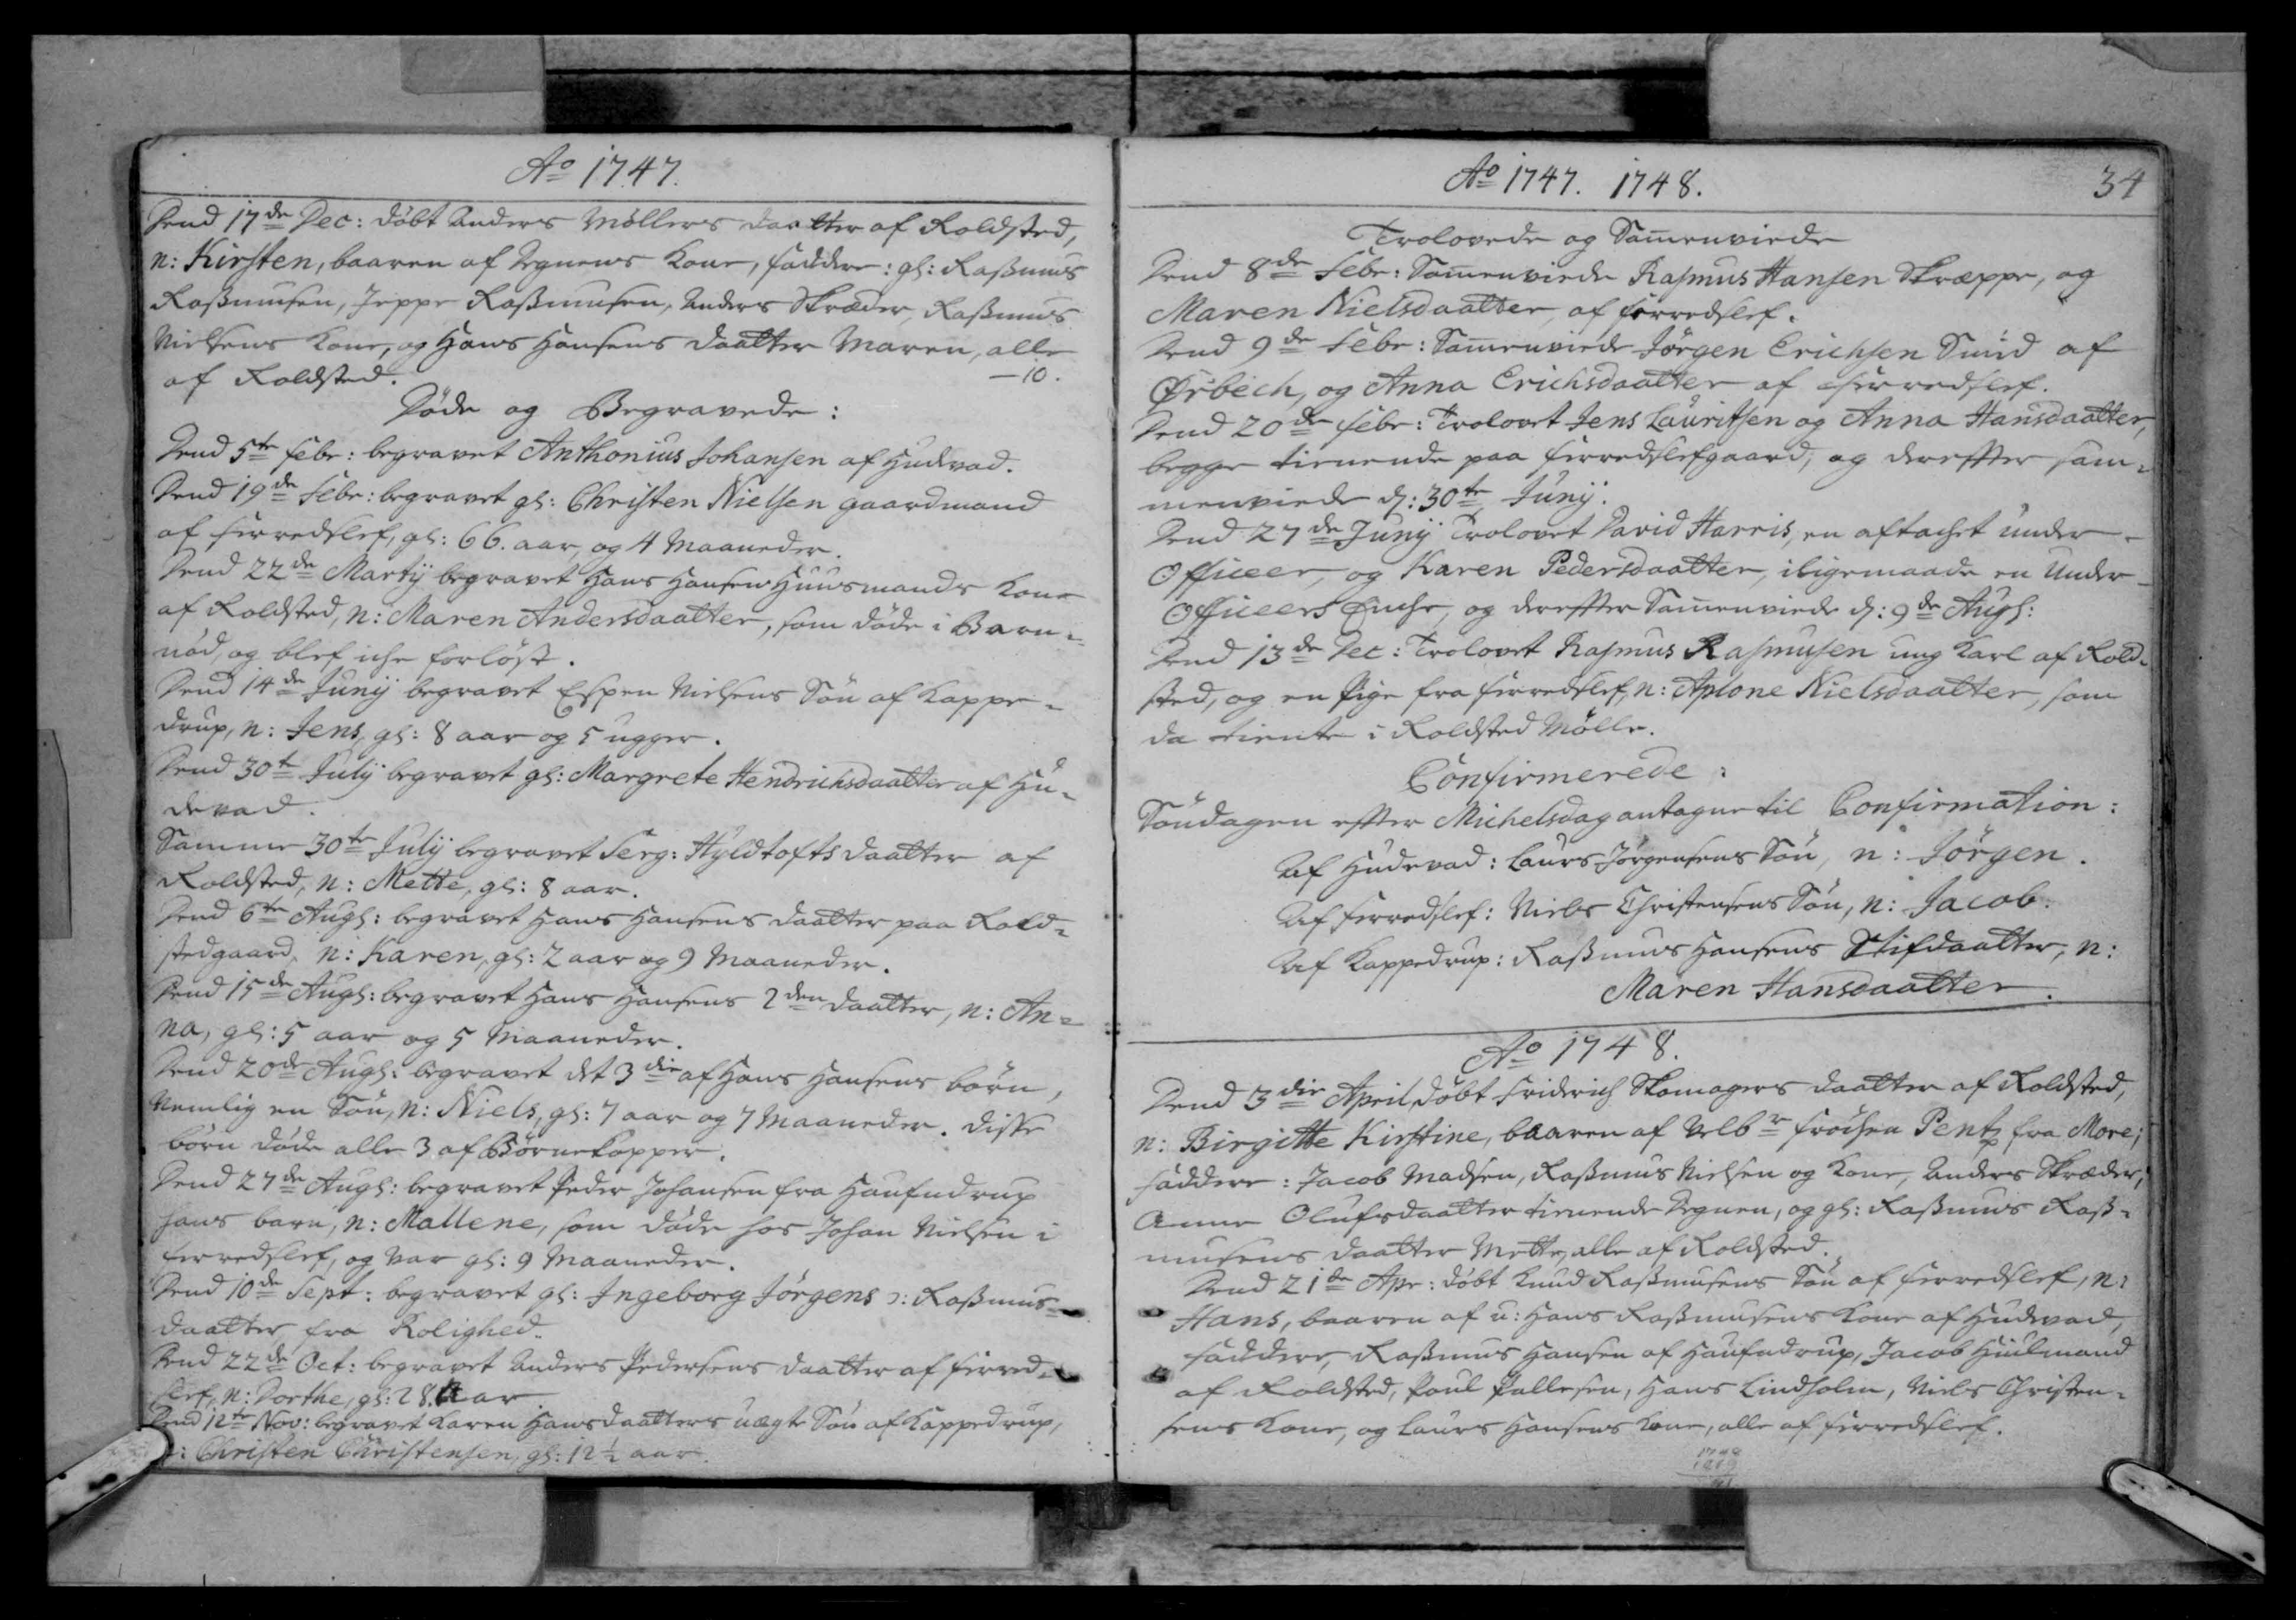 Ao 1747.
Dend 17de Dec: døbt Anders Møllers daatter af Roldsted,
n: Kirsten, baaren af Degnens Kone, faddere: gl: Rasmus
Rasmusen, Jeppe Rasmusen, Anders Skræder, Rasmus
Nielsens Kone, og Hans Hansens daatter Maren, alle
af Roldsted. —10.
Døde og Begravede:
Dend 5te Febr: begravet Anthonius Johansen af Hudevad.
Dend 19de Febr: begravet gl: Christen Nielsen gaardmand
af Ferredslef, gl: 66. aar, og 4 Maaneder.
Dend 22de Martij begravet Hans Hansen Huusmands Kone
af Roldsted, n: Maren Andersdaatter, som døde i Barn=
nød, og blef iche forløst.
Dend 14de Junij begravet Espen Nielsens Søn af Kappe=
drup, n: Jens, gl: 8 aar og 5 ugger.
Dend 30te Julij begravet gl: Margrete Hendrichsdaatter af Hu=
devad.
Samme 30te Julij begravet Serg: Hyldtofts daatter af
Roldsted, n: Mette, gl: 8 aar.
Dend 6te Augs: begravet Hans Hansens daatter paa Rold=
stedgaard, n: Karen, gl: 2 aar og 9 Maaneder.
Dend 15de Augs: begravet Hans Hansens 2den daatter, n: An=
na, gl: 5 aar og 5 Maaneder.
Dend 20de Augs: begravet det 3die af Hans Hansens børn,
Nemlig en Søn, n: Niels, gl: 7 aar og 7 Maaneder. disse
børn døde alle 3 af Børnekopper.
Dend 27de Augs: begravet Peder Johansen fra Haufndrup
hans barn, n: Mallene, som døde hos Johan Nielsen i
Ferredslef, og var gl: 9 Maaneder.
Dend 10de Sept: begravet gl: Ingeborg Jørgens ɔ: Rasmus=
daatter fra Rolighed.
Dend 22de Oct: begravet Anders Pedersens daatter af Ferred=
slef, n: Dorthe, gl: 28. aar.
Dend 12te Nov: begravet Karen Hansdaatters uægte Søn af Kappedrup,
n: Christen Christensen, gl: 12½ aar.
Ao 1747. 1748. 34
Trolovede og Sammenviede
Dend 8de Febr: Sammenviede Rasmus Hansen Skræppe, og
Maren Nielsdaatter, af Ferredslef.
Dend 9de Febr: Sammenviede Jørgen Erichsen Smid af
Ørbech, og Anna Erichsdaatter af Ferredslef.
Dend 20de Febr: Trolovet Jens Lauritsen og Anna Hansdaatter,
begge tienende paa Ferredslefgaard, og derefter sam=
menviede d: 30te Junij.
Dend 27de Junij Trolovet David Harris, en aftachet under-
Officeer, og Karen Pedersdaatter, iligemaade en Under-
Officeers Enche, og derefter Sammenviede d: 9de Augs:
Dend 13de Dec: Trolovet Rasmus Rasmusen ung Karl af Rold=
sted, og en Pige fra Ferredslef, n: Aplone Nielsdaatter, som
da tiente i Roldsted Mølle.
Confirmerede:
Søndagen efter Michelsdag antagne til Confirmation:
Af Hudevad: Laurs Jørgensens Søn, n: Jørgen.
Af Ferredslef: Niels Christensens Søn, n: Jacob.
Af Kappedrup: Rasmus Hansens Stifdaatter, n:
Maren Hansdaatter.
Ao 1748.
Dend 3die April, døbt Fridrich Skomagers daatter af Roldsted,
n: Birgitte Kirstine, baaren af Velbr Frøchen Pentz fra More;
faddere: Jacob Madsen, Rasmus Nielsen og Kone, Anders Skræder,
Anne Olufsdaatter tienende Degnen, og gl: Rasmus Ras=
musens daatter Mette, alle af Roldsted.
Dend 21de Apr: døbt Knud Rasmusens Søn af Ferredslef, n:
Hans, baaren af u: Hans Rasmusens Kone af Hudevad,
faddere, Rasmus Hansen af Haufndrup, Jacob Hiulmand
af Roldsted, Poul Pallesen, Hans Lindholm, Niels Christen=
sens Kone, og Laurs Hansens Kone, alle af Ferredslef.